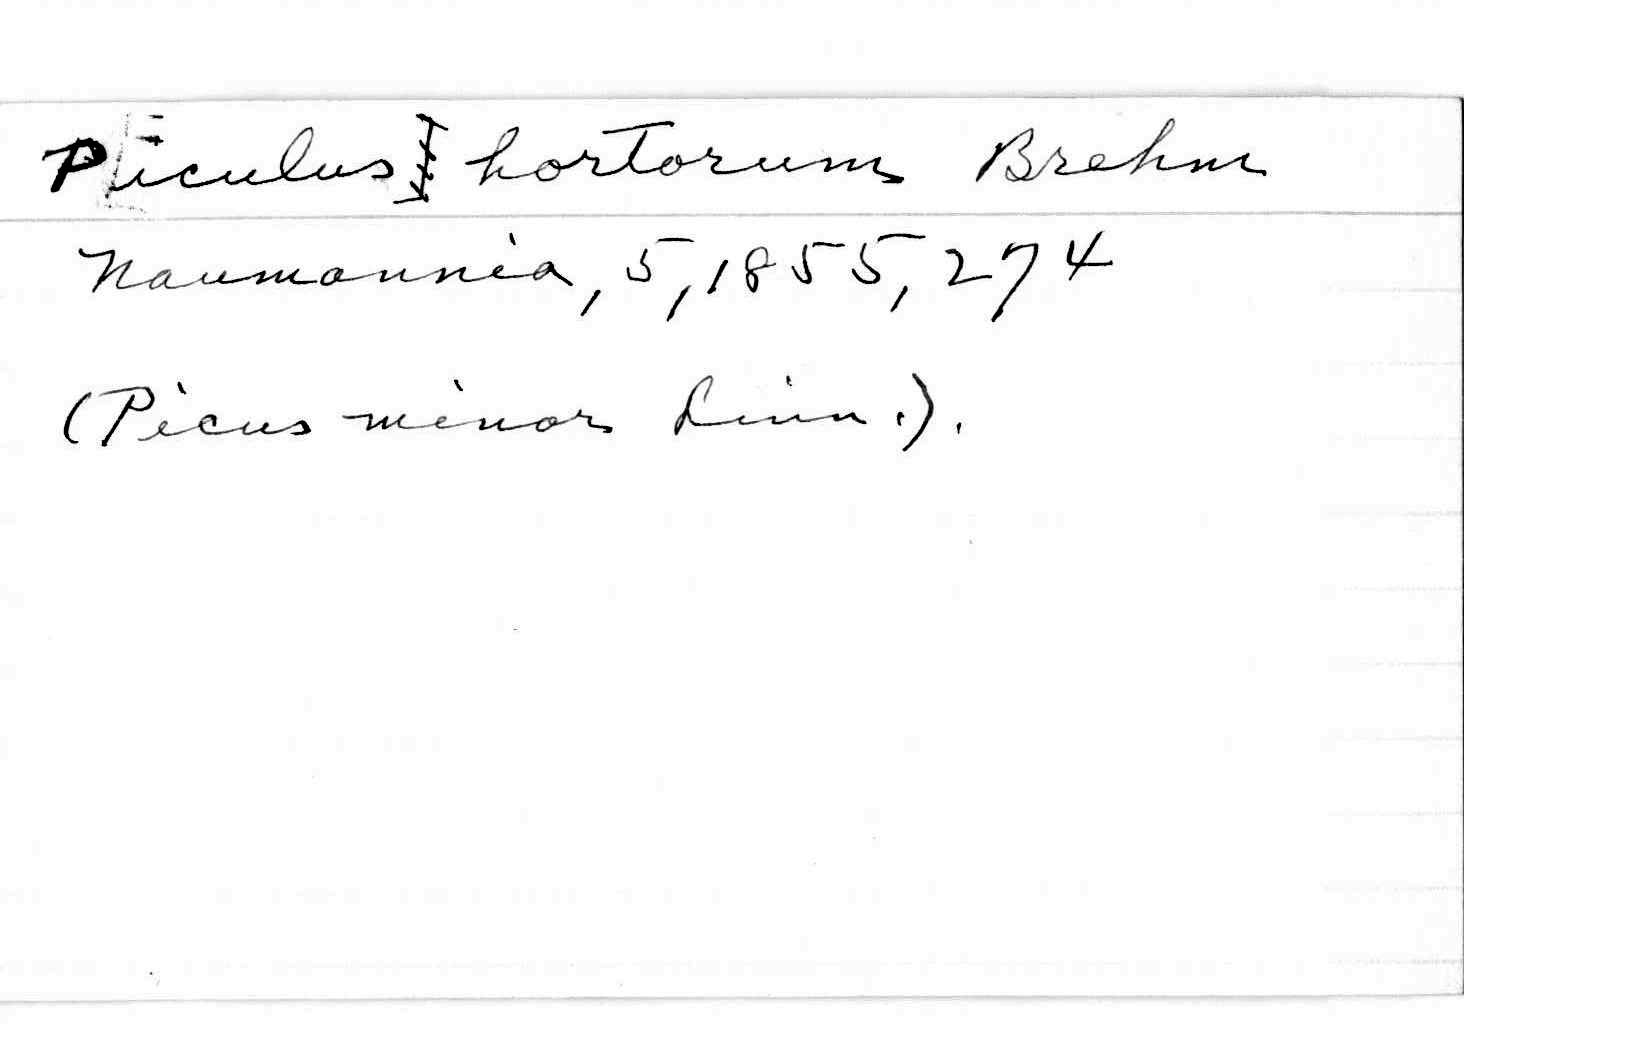 Piculus hortorum Brehm
Naumannia, 5, 1855, 274
(Picus minor Linn.).